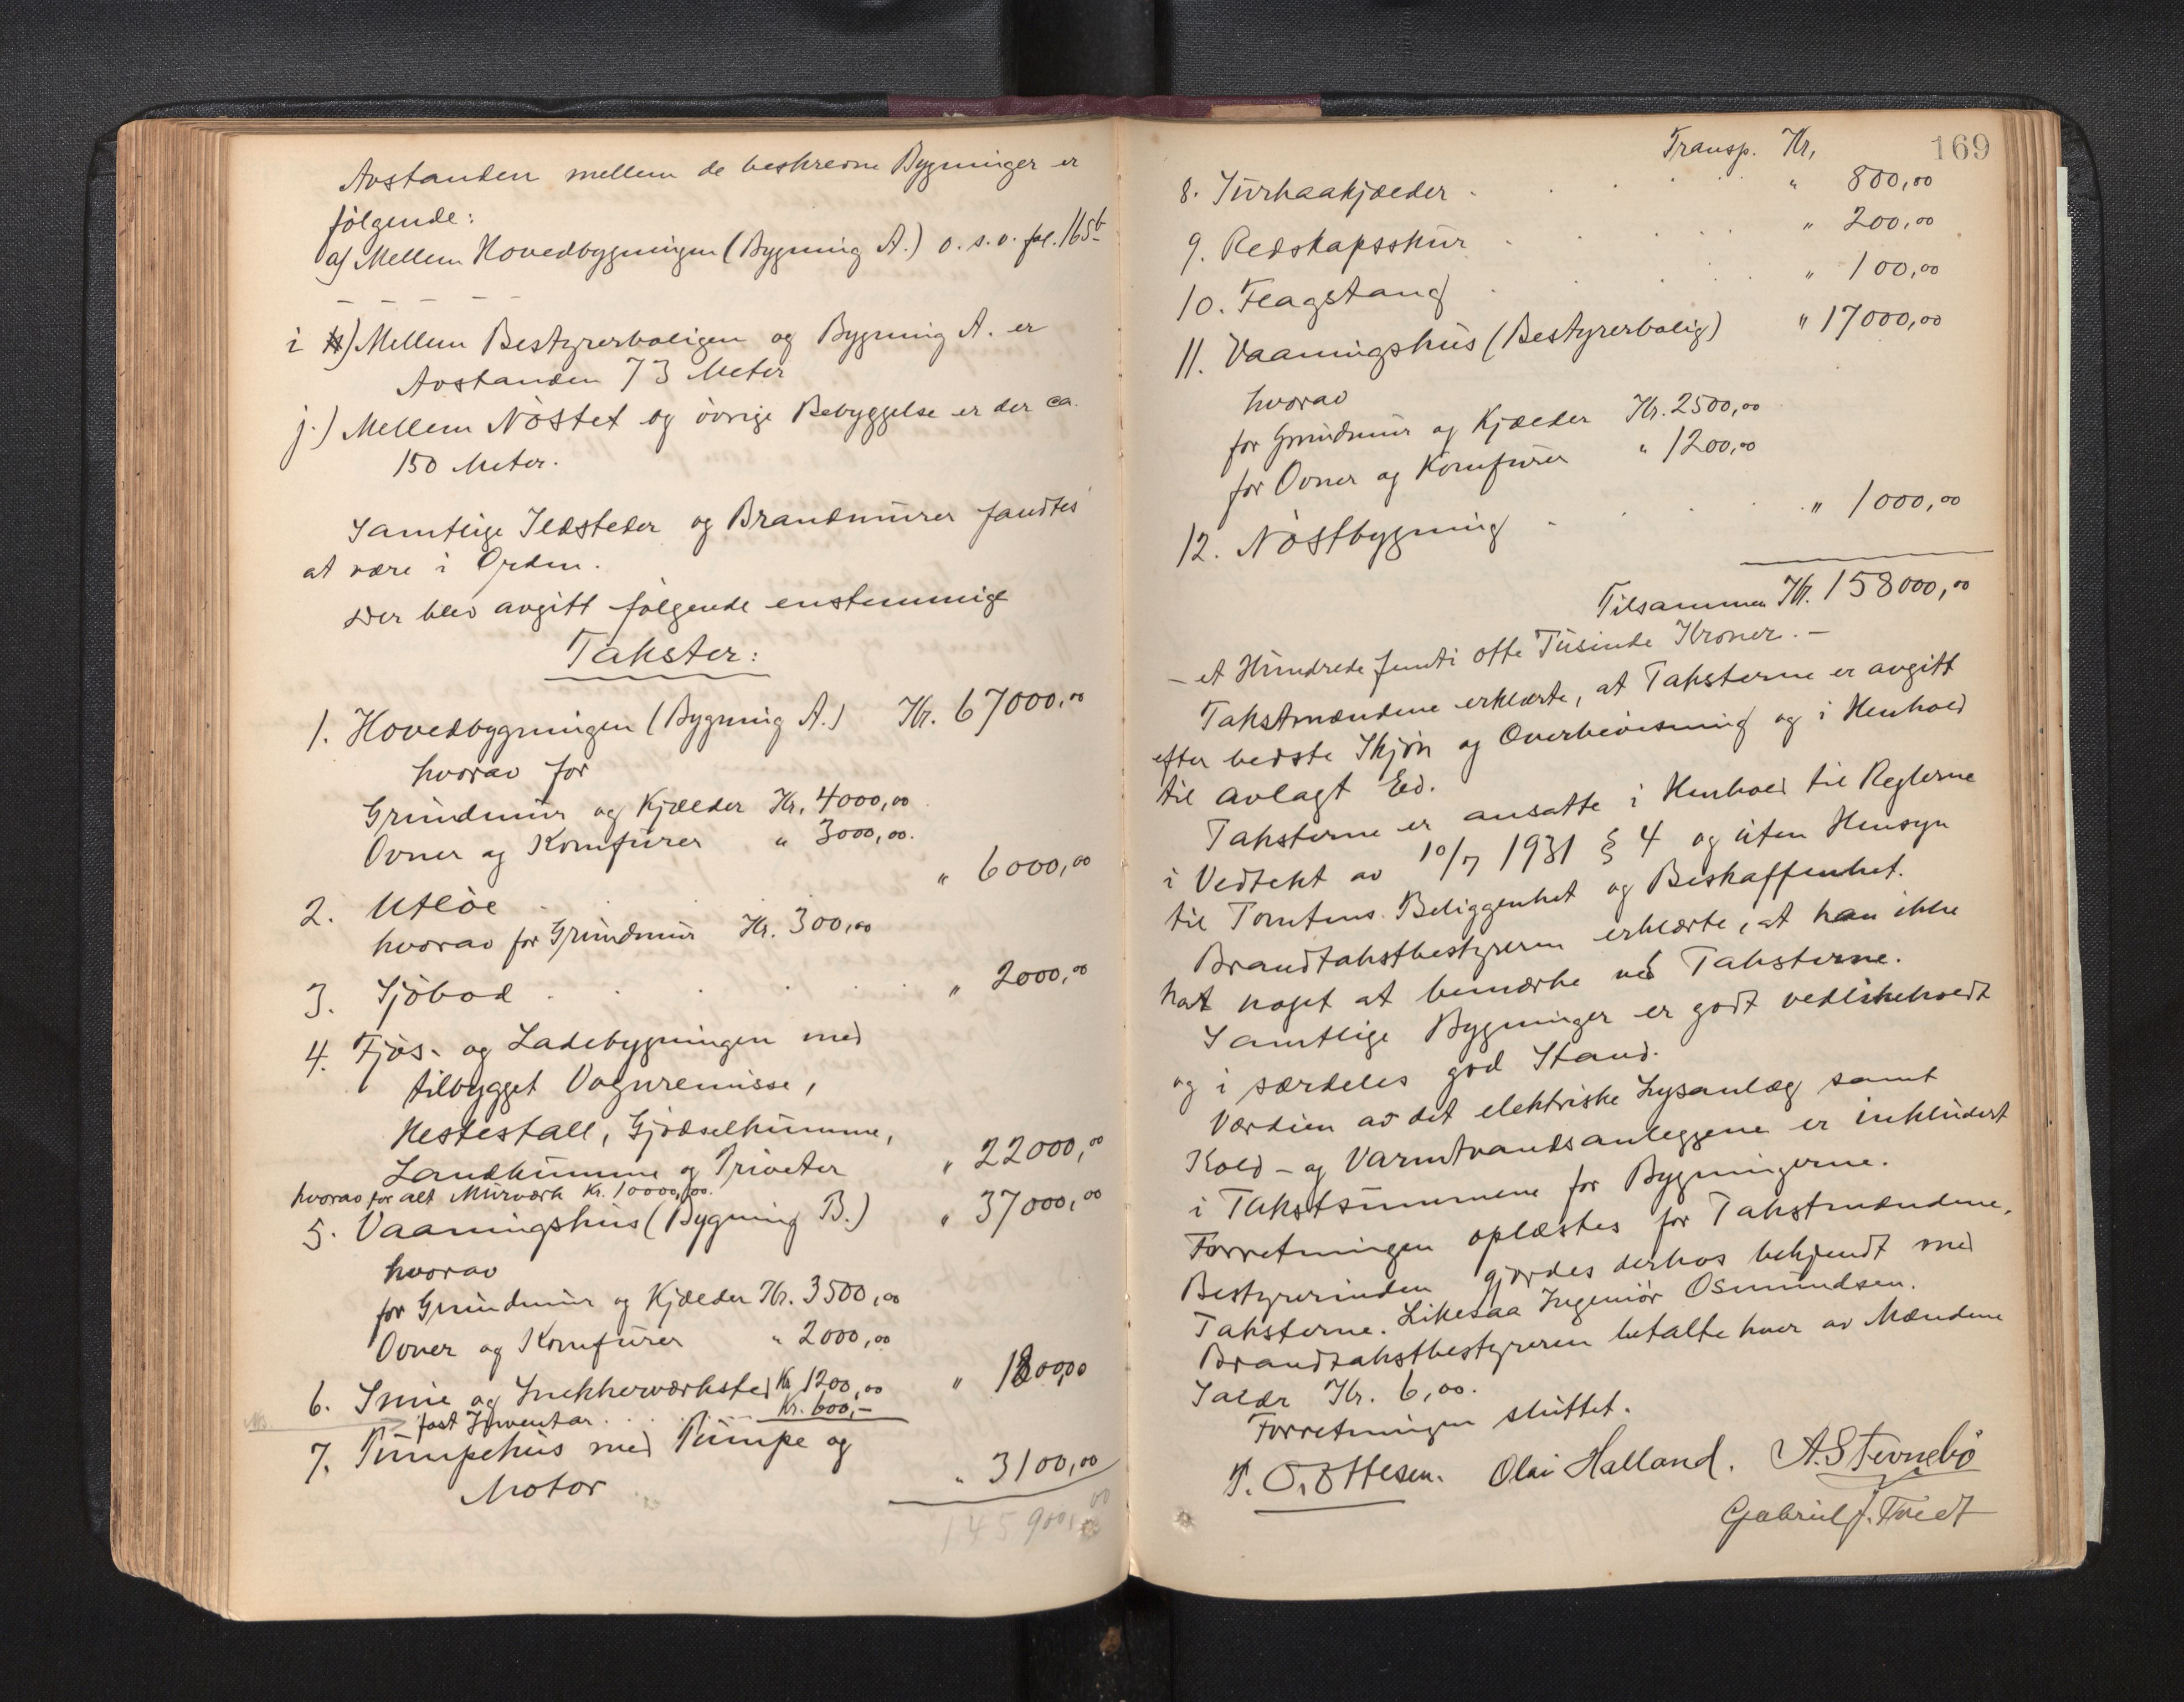 Avstanden mellem de beskrevne Bygninger er
følgende:
a) Mellem Hovedbygningen (Bygning A.) o. s. v. fol. 165b
— — — —
i) Mellem Bestyrerboligen og Bygning A. er
Avstanden 73 Meter
j.) Mellem Nøstet og øvrige Bebyggelse er der ca.
150 Meter.
Samtlige Ildsteder og Brandmurer fandtes
at være i Orden.
Der blev avgitt følgende enstemmige
Takster:
1. Hovedbygningen (Bygning A.) Kr. 67000,00
hvorav for
Grundmur og Kjælder Kr. 4000,00
Ovner og Komfurer " 3000,00.
2. Utløe . " 6000,00
hvorav for Grundmur Kr. 300,00
3. Sjøbod . . . . . " 2000,00
4. Fjøs- og Ladebygningen med
tilbygget Vognremisse,
Hestestall, Gjødselkumme,
Landkumme og Priveter " 22000,00
hvorav for alt Murværk Kr. 10000,00.
5. Vaaningshus (Bygning B.) " 37000,00
hvorav
for Grundmur og Kjælder Kr. 3500,00
Ovner og Komfurer " 2000,00
6. Smie og Snekkerværksted Kr 1200,00 " 1800,00
NB. fast Inventar . . . Kr. 600,-
7. Pumpehus med Pumpe og
Motor . " 3100,00
145900,00
169
Transp. Kr.
8. Jurhaakjælder . . . . " 800,00
9. Redskapsskur . . . . " 200,00
10. Flagstang . . . . " 100,00
11. Vaaningshus (Bestyrerbolig) " 17000,00
hvorav
for Grundmur og Kjælder Kr. 2500,00
for Ovner og Komfurer " 1200,00
12. Nøstbygning . . . . " 1000,00
Tilsammen Kr. 158000,00
– et Hundrede femti otte Tusinde Kroner. –
Takstmændene erklærte, at Taksterne er avgitt
efter bedste Skjøn og Overbevisning og i Henhold
til avlagt Ed.
Taksterne er ansatte i Henhold til Reglerne
i Vedtekt av 10/7 1931 § 4 og uten Hensyn
til Tomtens Beliggenhet og Beskaffenhet.
Brandtakstbestyreren erklærte, at han ikke
hat noget at bemærke ved Taksterne.
Samtlige Bygninger er godt vedlikeholdt
og i særdeles god Stand.
Værdien av det elektriske Lysanlæg samt
Kold- og Varmtvandsanleggene er inkludert
i Takstsummene for Bygningerne.
Forretningen oplæstes for Takstmændene.
Bestyrerinden gjordes derhos bekjendt med
Taksterne. Likesaa Ingeniør Osmundsen.
Brandtakstbestyreren betalte hver av Mændene
Salær Kr. 6,00.
Forretningen sluttet.
T. O. Ottesen. Olai Halland. A. Stevnebø
Gabriel J. Tvedt